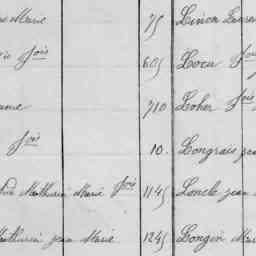 Marie 75 Linon
fois 605 Locu fois
710 Loher fois
fois 10. Longraie jean
Mathurin Marie fois 1145 Loncle jean
Mathurin jean Marie 1245 Longin